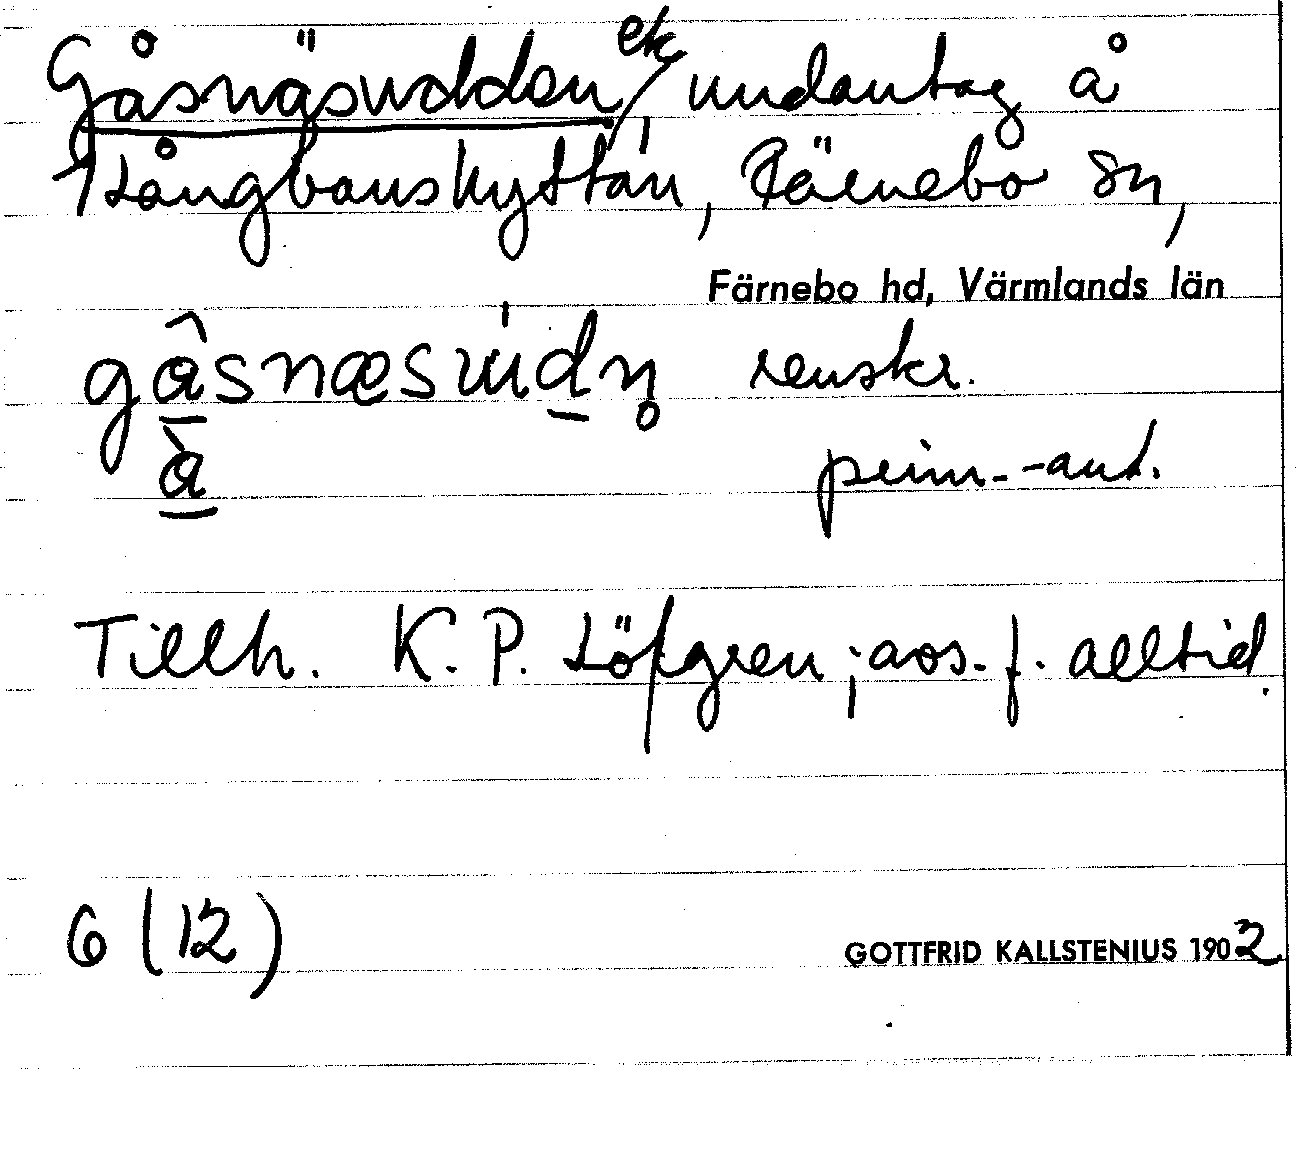 Gåsnäsudden ek, undantag å
Långbanshyttan, Färnebo sn,
Färnebo hd, Värmlands län
gâsnæsudn̥ renskr.
à prim.-ant.
Tillh. K. P. Löfgren; aos. f. alltid.
6 (12) GOTTFRID KALLSTENIUS 1902